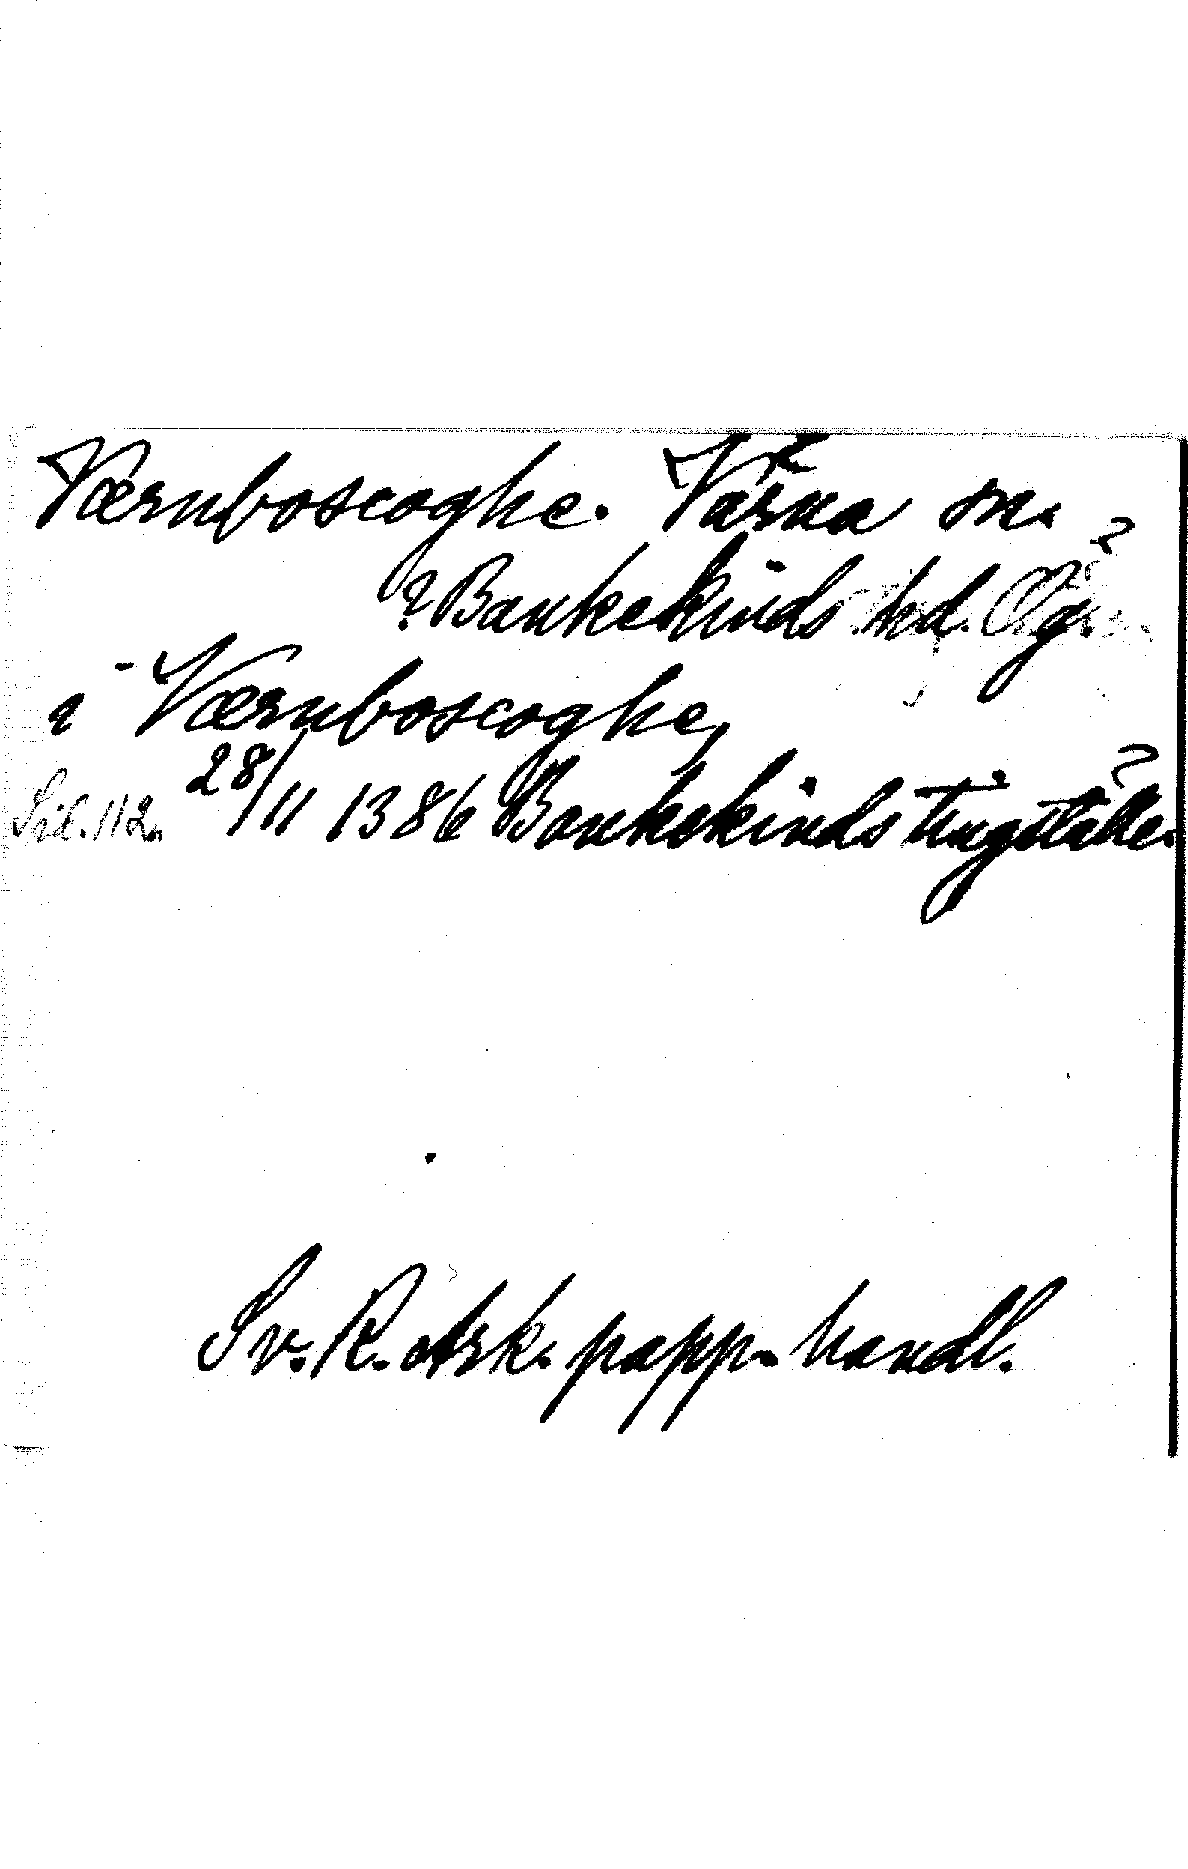 Værnboscoghe. Värna sn. ?
? Bankekinds hd. Ög.
i Værnboscoghe,
Sil. 112. 28/11 1386 Bankekinds tingställe.
Sv. R. Ark. papp. handl.